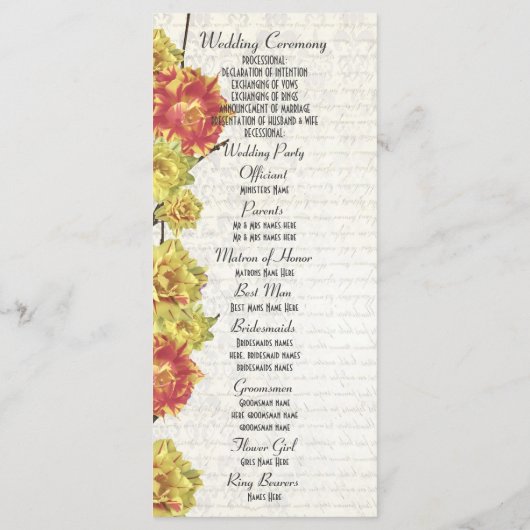 Wedding Ceremony
PROCESSIONAL:
DECLARATION OF INTENTION
EXCHANGING OF VOWS
EXCHANGING OF RINGS
ANNOUNCEMENT OF MARRIAGE
PRESENTATION OF HUSBAND & WIFE
RECESSIONAL:
Wedding Party
Officiant
MINISTERS NAME
Parents
MR & MRS NAMES HERE
MR & MRS NAMES HERE
Matron of Honor
MATRONS NAME HERE
Best Man
BEST MANS NAME HERE
Bridesmaids
BRIDESMAIDS NAMES
HERE, BRIDESMAID NAMES
BRIDESMAIDS NAMES
Groomsmen
GROOMSMAN NAME
HERE GROOMSMAN NAME
GROOMSMAN NAME
Flower Girl
GIRLS NAME HERE
Ring Bearers
NAMES HERE